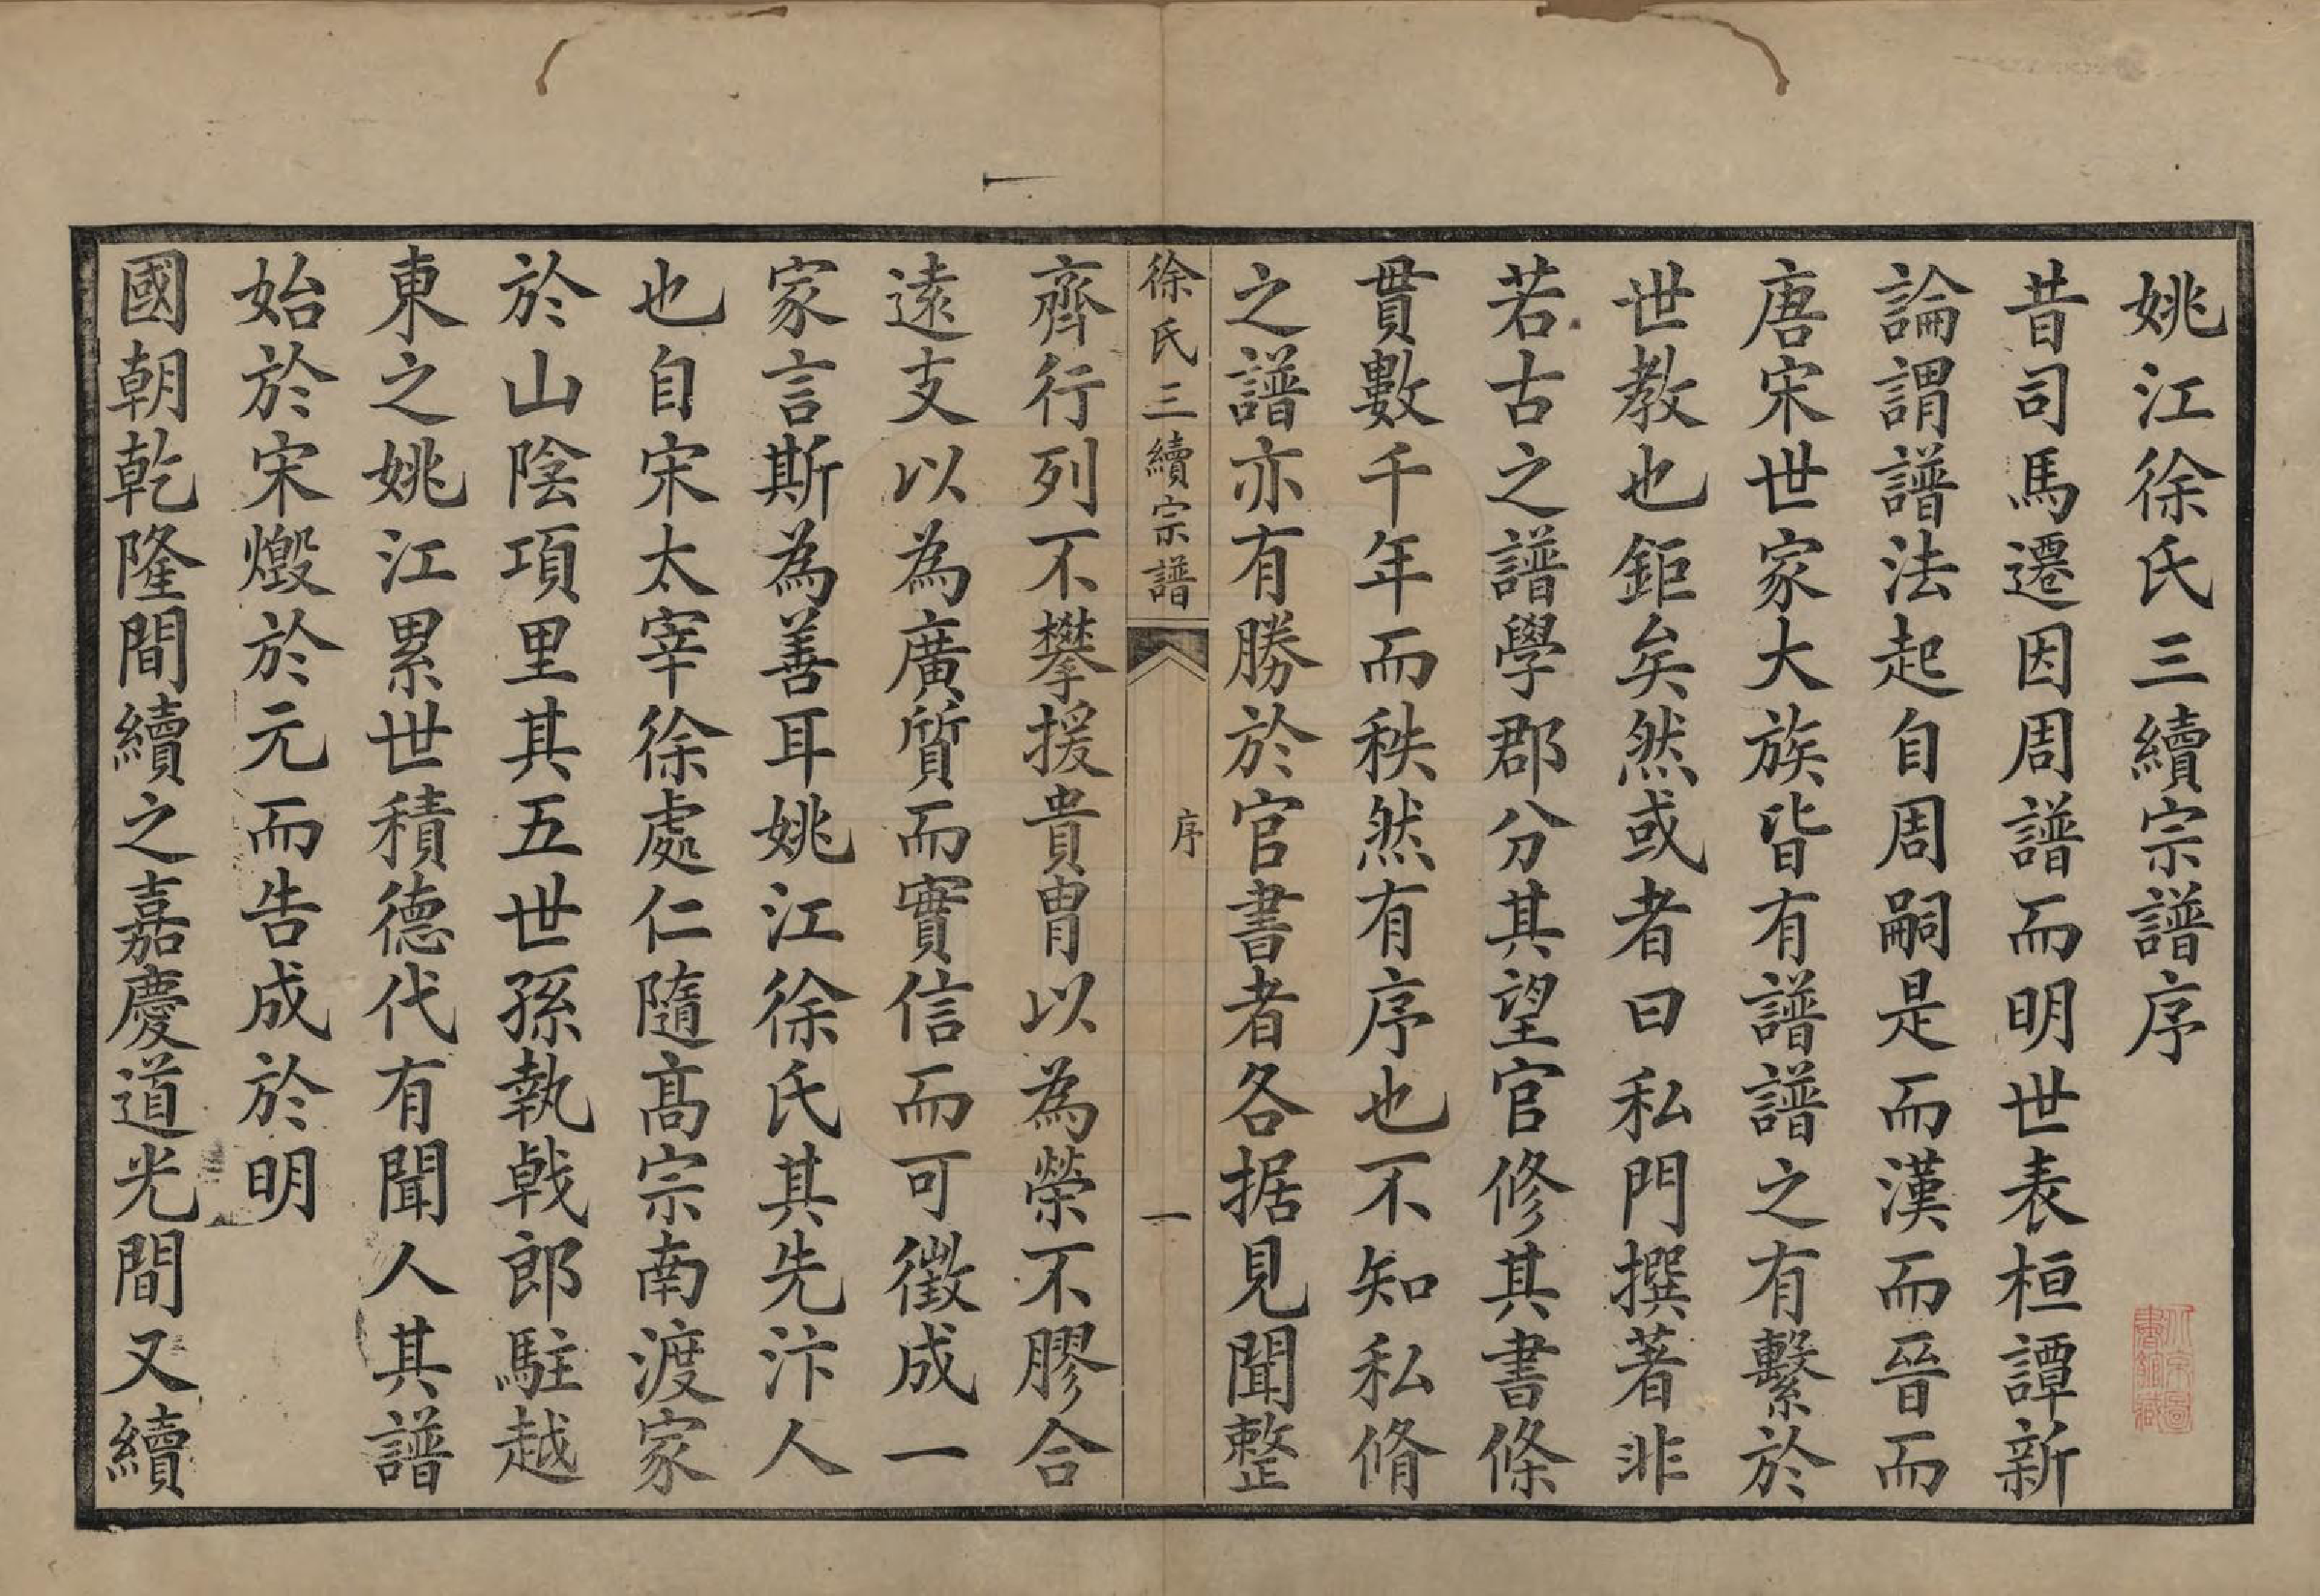 姚江徐氏三續宗譜序
昔司馬遷因周譜而明世表桓譚新
論謂譜法起自周嗣是而漢而晉而
唐宋世家大族皆有譜譜之有繫於
世教也鉅矣然或者曰私門撰著非
若古之譜學郡分其望官修其書條
貫數千年而秩然有序也不知私脩
之譜亦有勝於官書者各据見聞整
徐氏三續宗譜
序
一
齊行列不攀援貴胄以為榮不膠合
遠支以為廣質而實信而可徵成一
家言斯為善耳姚江徐氏其先汴人
也自宋太宰徐處仁隨髙宗南渡家
於山陰項里其五世孫執戟郎駐越
東之姚江累世積德代有聞人其譜
始於宋燬於元而告成於明
國朝乾隆間續之嘉慶道光間又續